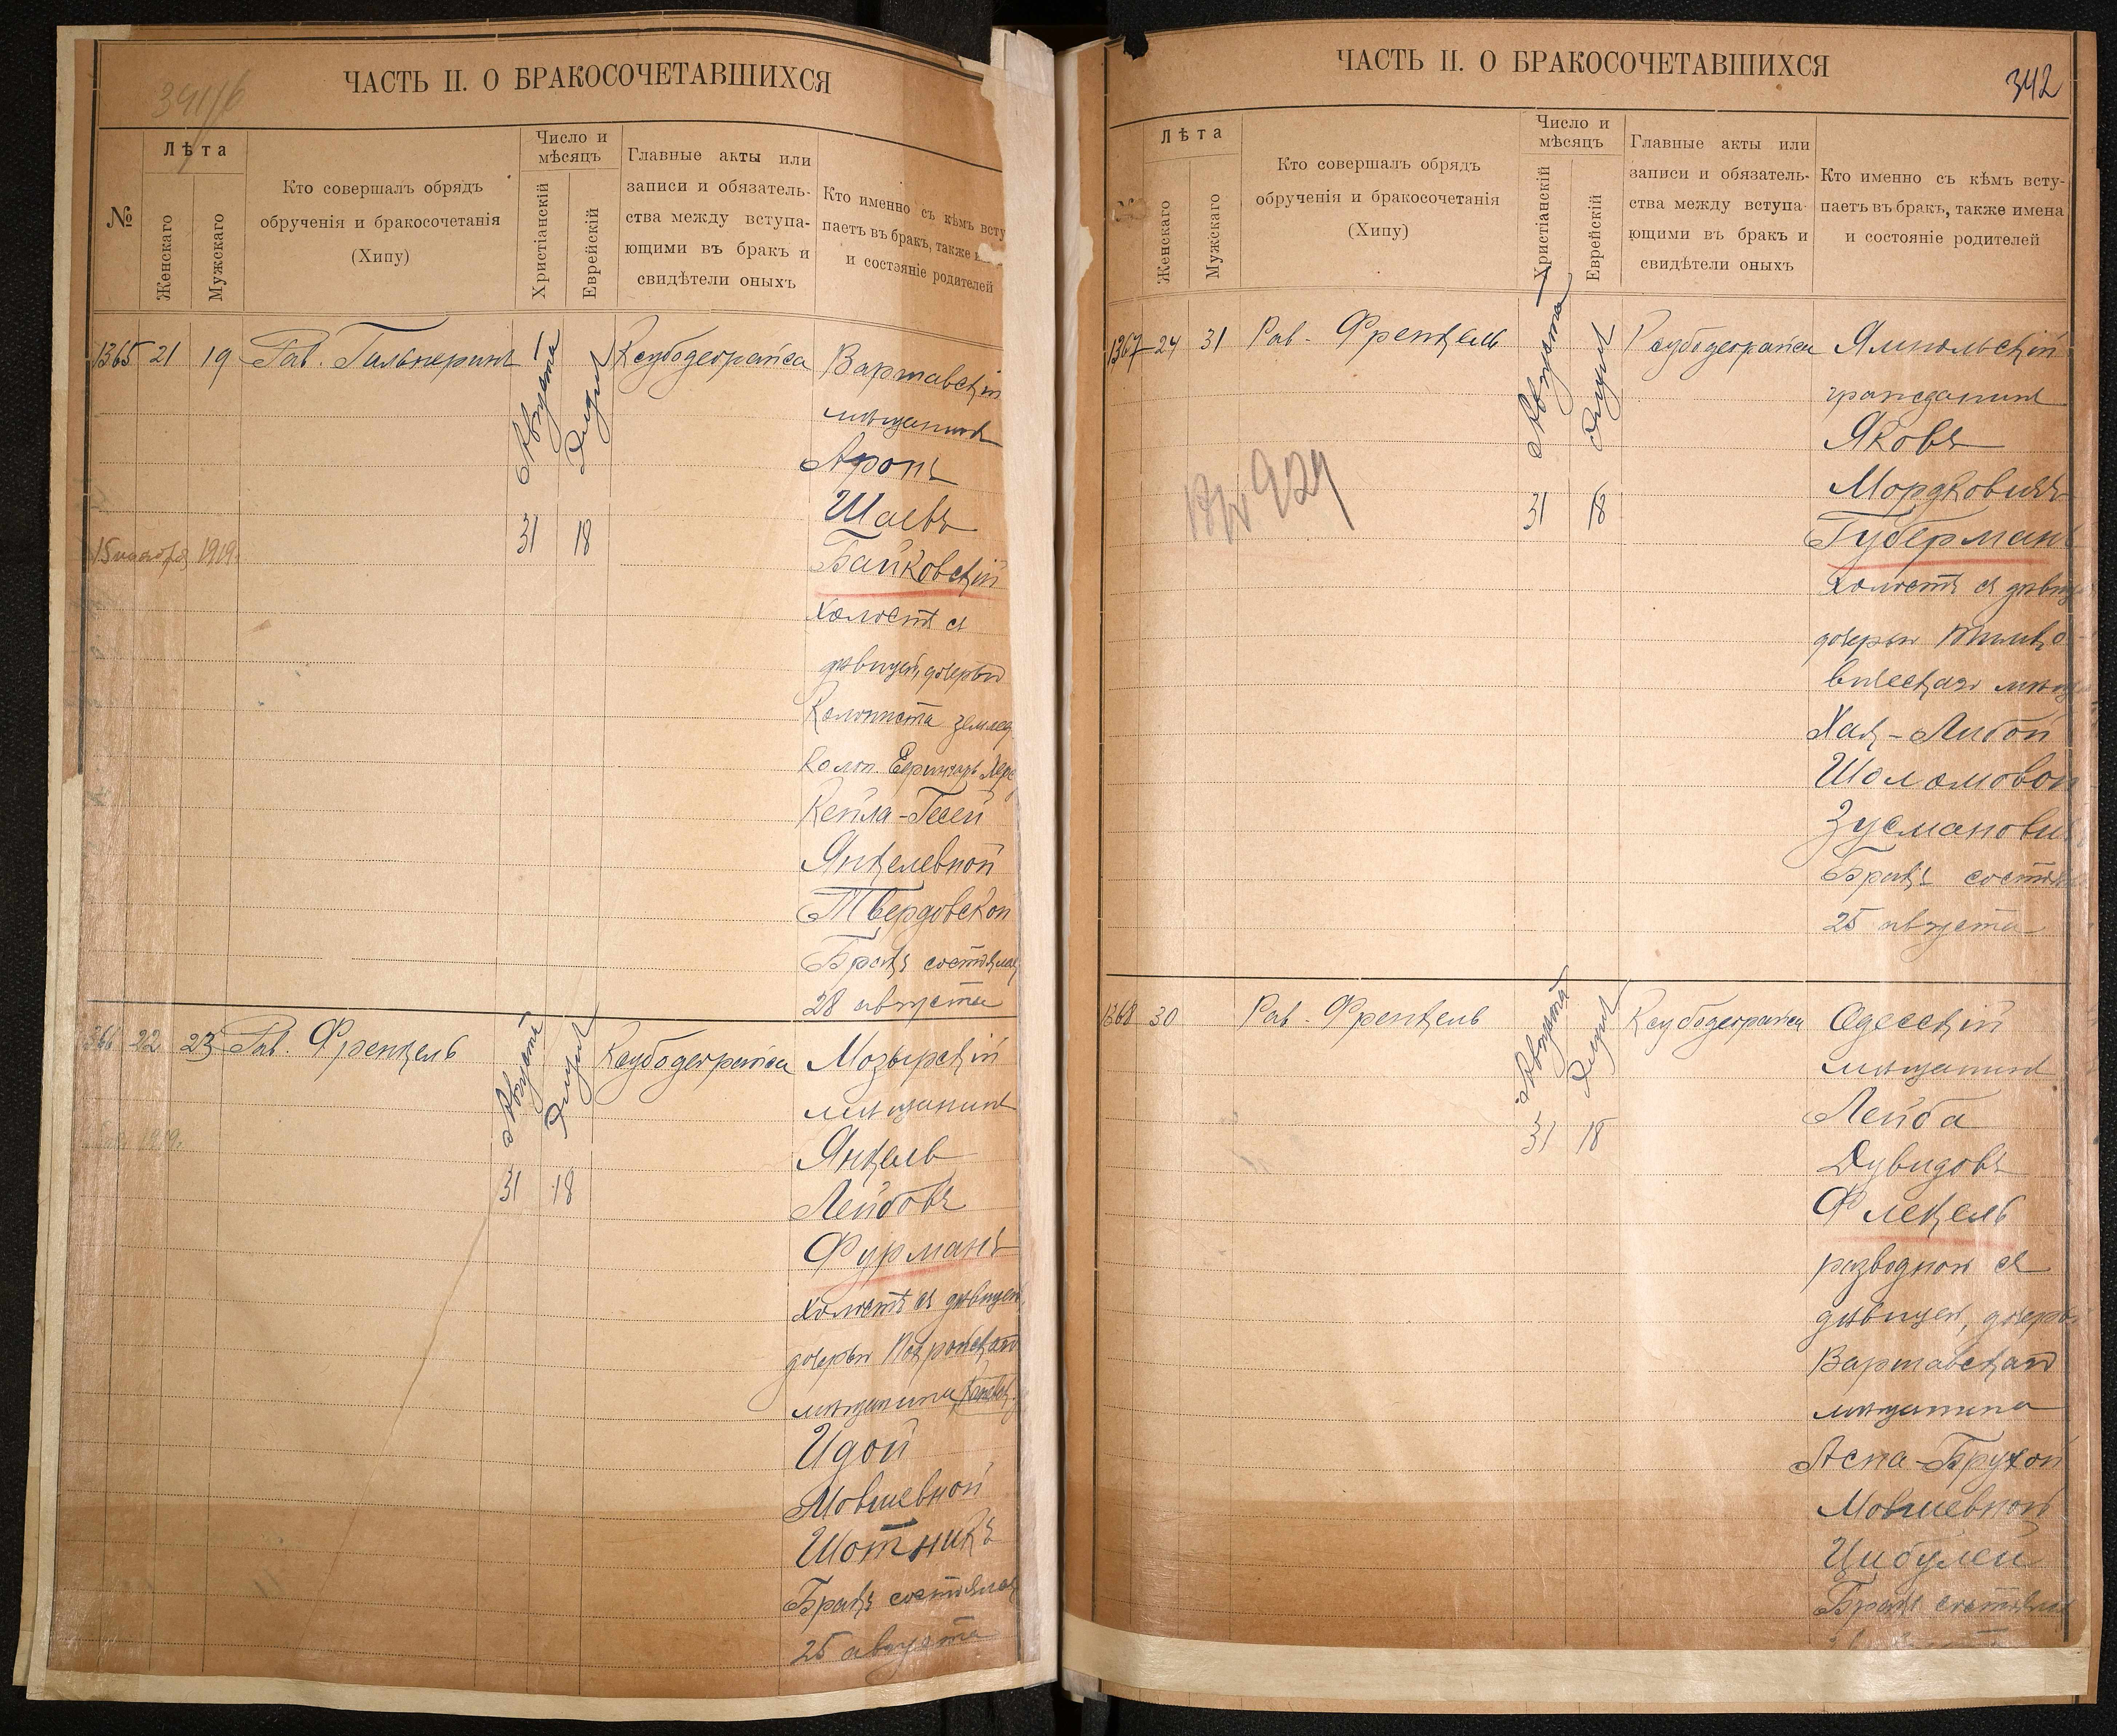 ЧАСТЬ II. О БРАКОСОЧЕТАВШИХСЯ
№
Лѣта
Женскаго
Мужскаго
Кто совершалъ обрядъ
обрученія и бракосочетанія
(Хипу)
Число и
мѣсяцъ
Христіанскій
Еврейскій
Главные акты или
записи и обязатель-
ства между вступа-
ющими въ бракъ и
свидѣтели оныхъ
Кто именно съ кѣмъ всту
паетъ въ бракъ, также
и состояніе родителей
1365 21 19 Рав. Гальперинъ
Августа
Элулъ
31 18
Ксубодеграйса
15 ноября 1919.
Варшавскій
мѣщанинъ
Аронъ
Шаевъ
Байковскій
холостъ съ
дѣвицей, дочерью
Колониста землед.
Колон. Ефингаръ Херс
Кейла-Гесей
Янкелевной
Твердовской
Бракъ состоялся
28 августа
1366 22 23 Рав. Френкель
Августа
Элулъ
31 18
Ксубодеграйса
Мозырскій
мѣщанинъ
Янкель
Лейбовъ
Фурманъ
холостъ съ дѣвицей,
дочерью
мѣщанина
Идой
Мовшевной
Шотникъ
Бракъ состоялся
25 августа
ЧАСТЬ II. О БРАКОСОЧЕТАВШИХСЯ
342
Лѣта
Женскаго
Мужскаго
Кто совершалъ обрядъ
обрученія и бракосочетанія
(Хипу)
Число и
мѣсяцъ
Христіанскій
Еврейскій
Главные акты или
записи и обязатель-
ства между вступа-
ющими въ бракъ и
свидѣтели оныхъ
Кто именно съ кѣмъ всту-
паетъ въ бракъ, также имена
и состояніе родителей
1367 24 31 Рав. Френкель
Августа
Элулъ
31 18
Ксубодеграйса
Ямпольскій
гражданинъ
Яковъ
Мордковичъ
Губерман
холостъ съ дѣвиц
дочерью
Хая-Либой
Шоломовой
Зусманови
Бракъ состоя
25 августа
1368 30 Рав. Френкель
Августа
Элулъ
31 18
Ксубодеграйса
Одесскій
мѣщанинъ
Лейба
Дувидовъ
Флекель
разводной съ
дѣвицей, дочерью
Варшавскаго
мѣщанина
Асна-Брухой
Мовшевной
Цибулей
Бракъ состоялся